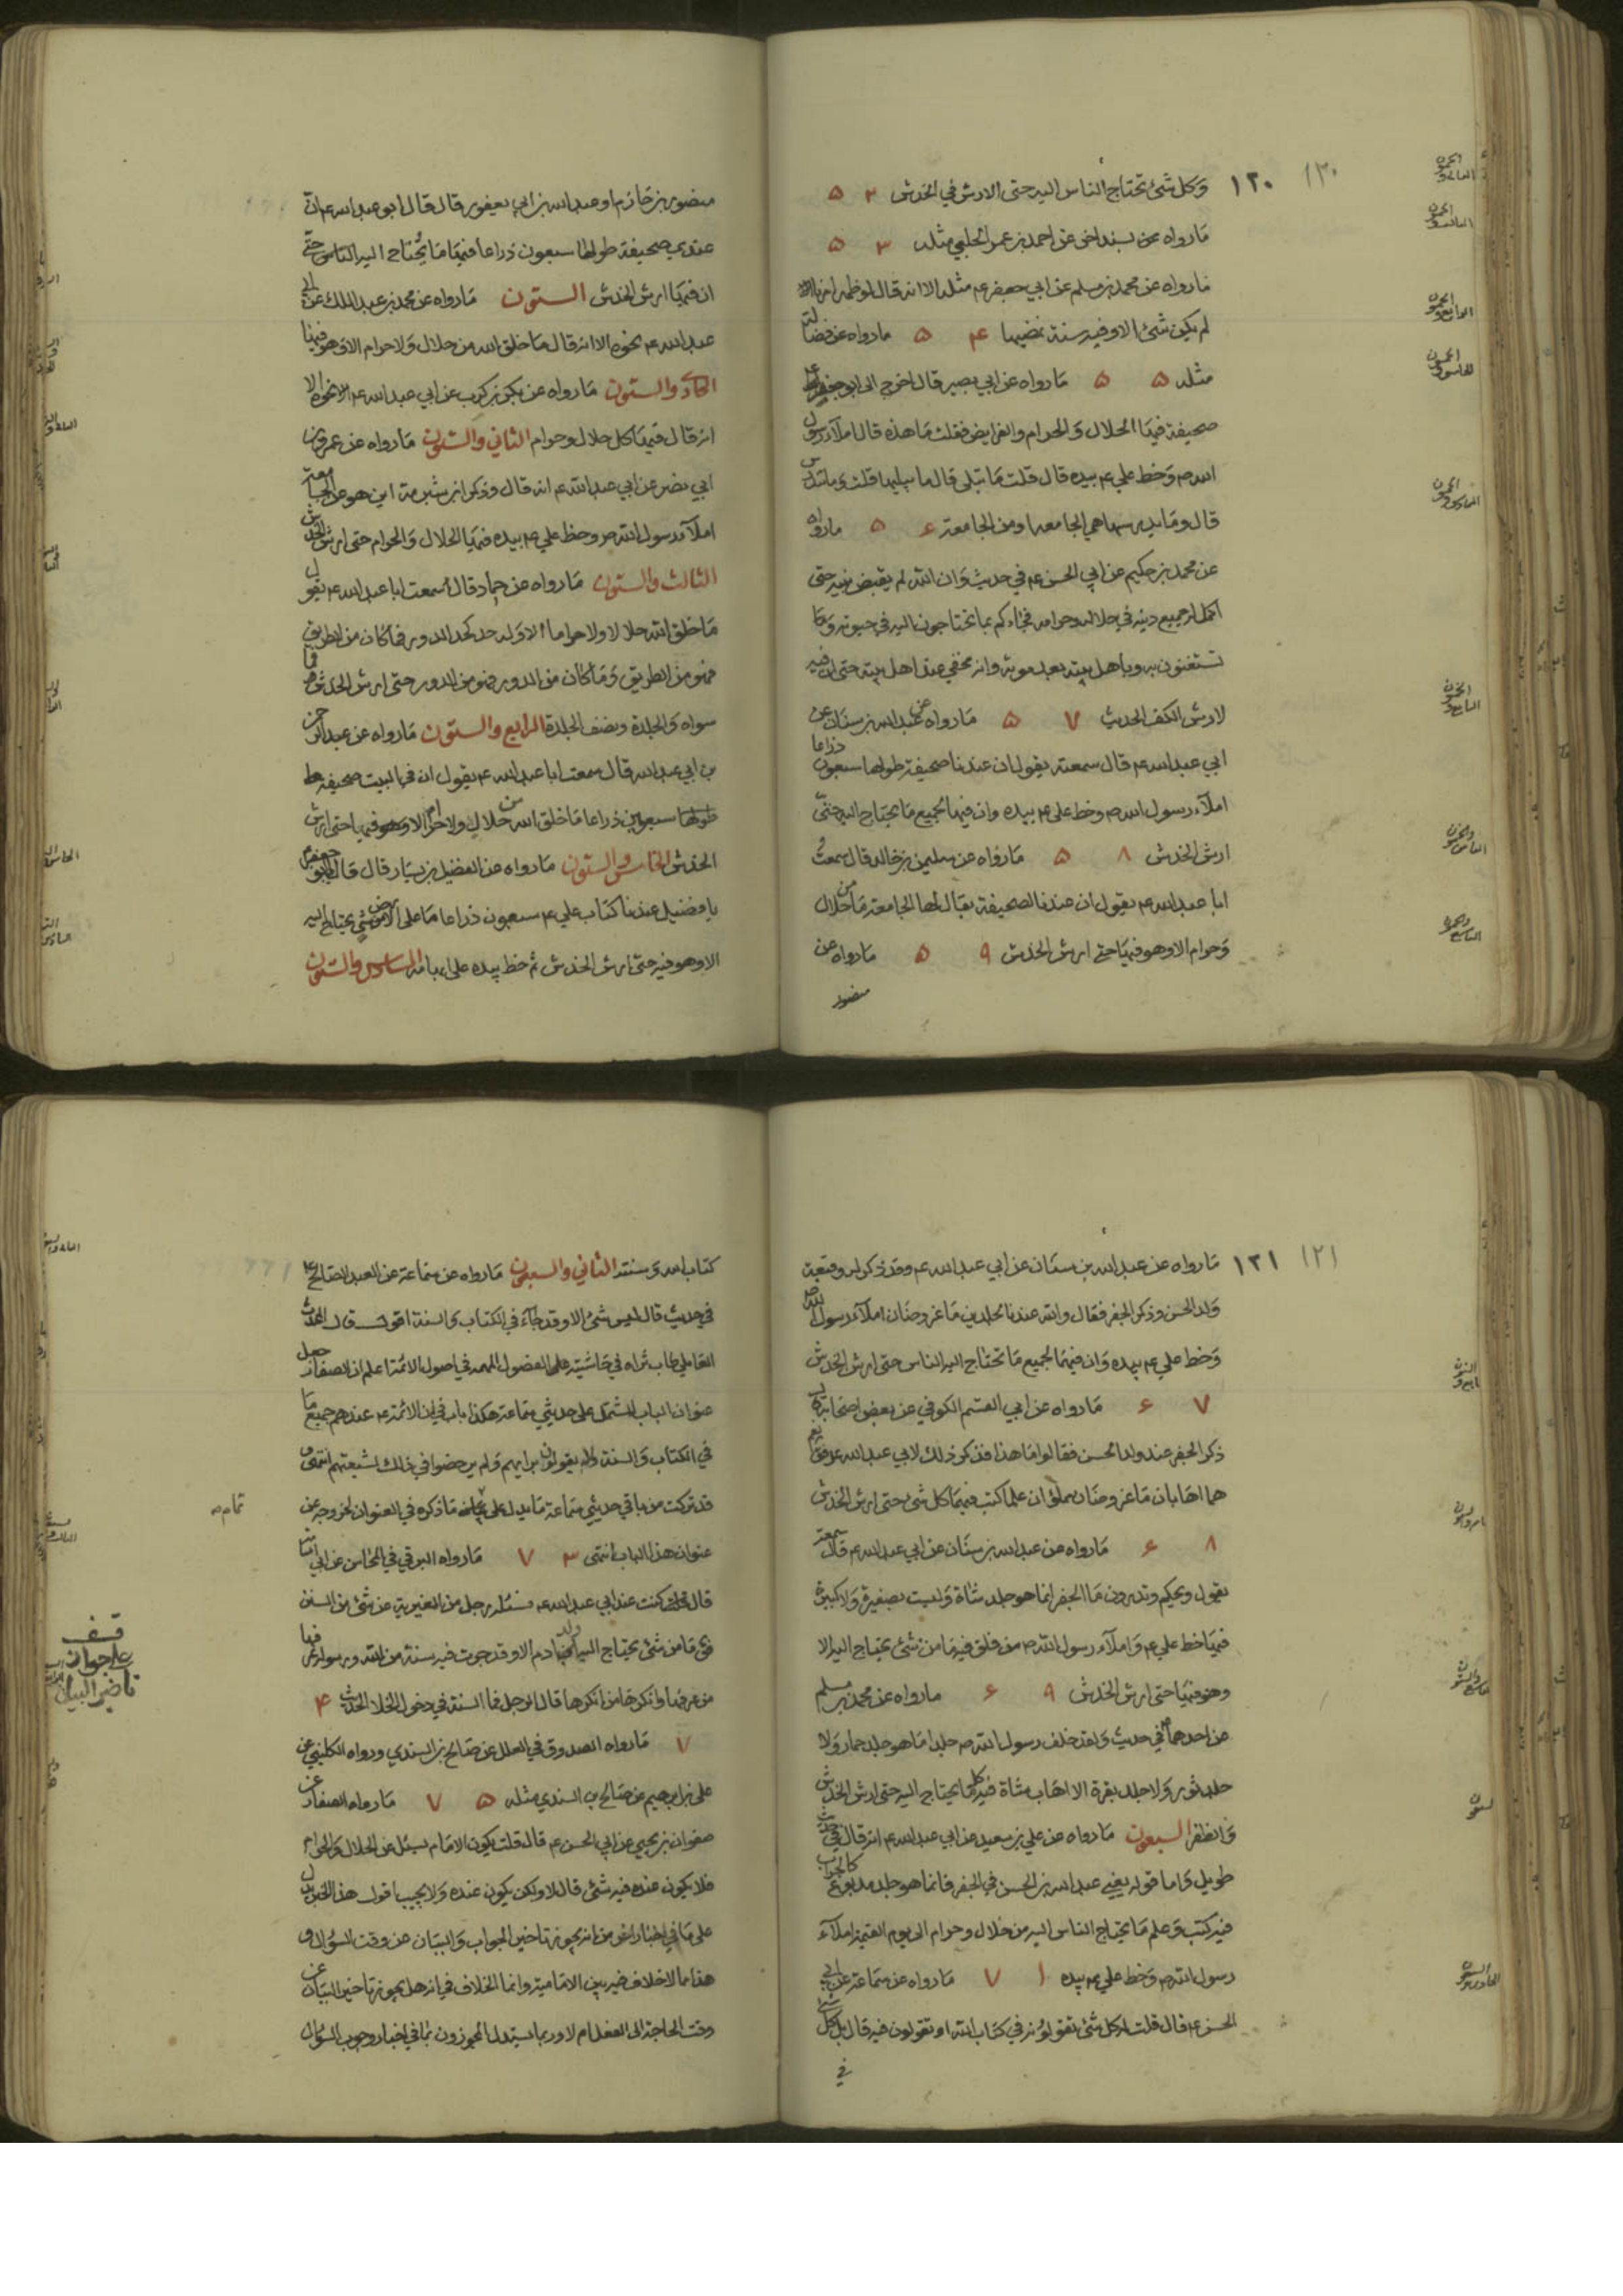 ١٢٠
وكل شئ تحتاج الناس اليه حتى الارش في الخدش ٢ ٥
مارواه عن بسند اخى عن احمد بن عمر الحلبي مثله ٣ ٥
مارواه عن محمد بن مسلم عن ابي جعفر ع مثله الا انه قال
لم يكن شئ الا وفيه سنة نمضيها ۴ ٥ مارواه عن
مثله ٥ ٥ مارواه عن ابي بصير قال اخرج الى ابو جعفر ع
صحيفة فيها الحلال والحرام والفرايض فقلت ما هذه قال املاء رسول
الله ص وخط علي ع بيده قال قلت ما تبلى قال ما يبليها قلت وما تدرس
قال وما يدرسها هي الجامعه او من الجامعة ۶ ٥ مارواه
عن محمد بن حكيم عن ابي الحسن ع في حديث وان الله لم يقبض نبيه حتى
اكمل له جميع دينه في حلاله وحرامه فجاءكم بما تحتاجون اليه في حيوته و
تستغنون به وباهل بيته بعد موته وانه مخفي عند اهل بيته حتى ان فيه
لارش الكف الحديث ٧ ٥ مارواه عن عبد الله بن سنان عن
ابي عبد الله ع قال سمعته يقول ان عندنا صحيفة طولها سبعون ذراعا
املاء رسول الله ص وخط علي ع بيده وان فيها لجميع ما يحتاج اليه حتى
ارش الخدش ٨ ٥ مارواه عن سليمن بن خالد قال سمعت
ابا عبد الله ع يقول ان عندنا لصحيفة يقال لها الجامعة ما من حلال
وحرام الا وهو فيها حتى ارش الخدش ٩ ٥ مارواه عن
منصور
منصور بن حازم او عبد الله بن ابي يعفور قال قال ابو عبد الله ع ان
عندي صحيفة طولها سبعون ذراعا فيها ما يحتاج اليه الناس حتى
ان فيها ارش الخدش الستون مارواه عن محمد بن عبد الملك عن ابي
عبد الله ع نحوه الا انه قال ما خلق الله من حلال ولا حرام الا وهو فيها
الحادي والستون مارواه عن بكر بن كرب عن ابي عبد الله ع نحوه الا
انه قال فيها كل حلال وحرام الثاني والستون مارواه عن عمرو بن
ابي نصر عن ابي عبد الله ع انه قال وذكر ابن شبرمة اين هو من الجامعة
املاء رسول الله ص وخط علي ع بيده فيها الحلال والحرام حتى ارش الخدش
الثالث والستون مارواه عن حماد قال سمعت ابا عبد الله ع يقول
ما خلق الله حلالا ولا حراما الا وله حد كحد الدور فما كان من الطريق
فهو من الطريق وما كان من الدور فهو من الدور حتى ارش الخدش فما
سواه والجلدة ونصف الجلدة الرابع والستون مارواه عن عبد الرحمن
بن ابي عبد الله قال سمعت ابا عبد الله ع يقول ان في البيت صحيفة
طولها سبعون ذراعا ما خلق الله من حلال ولا حرام الا وهو فيها حتى ارش
الخدش الخامس والستون مارواه عن الفضيل بن يسار قال قال ابو جعفر ع
يا فضيل عندنا كتاب علي ع سبعون ذراعا ما على الارض شئ يحتاج اليه
الا وهو فيه حتى ارش الخدش ثم خط بيده على ابهامه السادس والستون
١٢١
مارواه عن عبد الله بن سنان عن ابي عبد الله ع وقد ذكر له وقيعة
ولد الحسن وذكر الجفر فقال والله عندنا لجلدين ماعز وضان املاء رسول الله ص
وخط علي ع بيده وان فيها لجميع ما تحتاج اليه الناس حتى ارش الخدش
٧ ۶ مارواه عن ابي القسم الكوفي عن بعض اصحابه
ذكر الجفر عند ولد الحسن فقالوا ما هذا فذكر ذلك لابي عبد الله ع فقال نعم
هما اهابان ماعز وضان مملؤان علما كتب فيهما كل شئ حتى ارش الخدش
٨ ۶ مارواه عن عبد الله بن سنان عن ابي عبد الله ع قال سمعته
يقول ويحكم وتدرون ما الجفر انما هو جلد شاة وليست بصغيرة ولا كبيرة
فيها خط علي ع واملاء رسول الله ص من فلق فيه ما من شئ يحتاج اليه الا
وهو فيها حتى ارش الخدش ٩ ۶ مارواه عن محمد بن مسلم
عن احدهما في حديث ولقد خلف رسول الله ص جلدا ما هو جلد حمار ولا
جلد ثور ولا جلد بقرة الا اهاب شاة فيها كلما يحتاج اليه حتى ارش الخدش
والظفر السبعون مارواه عن علي بن سعيد عن ابي عبد الله ع انه قال في حديث
طويل واما قوله يعني عبد الله بن الحسن في الجفر فانما هو جلد مدبوغ كالجراب
فيه كتب وعلم ما يحتاج الناس اليه من حلال وحرام الى يوم القيمة املاء
رسول الله ص وخط علي ع بيده ١ ٧ مارواه عن سماعة عن ابي
الحسن ع قال قلت له كل شئ تقولونه في كتاب الله او تقولون فيه قال بل كل شئ
في
كتاب الله وسنته الثاني والسبعون مارواه عن سماعة عن العبد الصالح ع
في حديث قال ليس شئ الا وقد جاء في الكتاب والسنة اقول قال المحدث
العاملي طاب ثراه في حاشيته على الفصول المهمه في اصول الائمة اعلم ان الصفار جعل
عنوان الباب المشتمل على حديثي سماعة هكذا باب في ان الائمة ع عندهم جميع ما
في الكتاب والسنة ولا يقولون برايهم ولم يرخصوا في ذلك لشيعتهم انتهى و
قد تركت من باقي حديثي سماعة ما يدل على ما ذكره في العنوان لخروجه عن
عنوان هذا الباب انتهى ٣ ٧ مارواه البرقي في المحاسن عن ابي
قال كنت عند ابي عبد الله ع فسئله رجل من المغيرية عن شئ من السنن
فق ما من شئ يحتاج اليه ولد ادم الا وقد جرت فيه سنة من الله ورسوله عرفها
من عرفها وانكرها من انكرها قال الرجل فما السنة في دخول الخلا الحديث ۴
٧ مارواه الصدوق في العلل عن صالح بن السندي ورواه الكليني عن
علي بن ابرهيم عن صالح بن السندي مثله ٥ ٧ مارواه الصفار عن
صفوان بن يحيى عن ابي الحسن ع قال قلت يكون الامام يسئل عن الحلال والحرام
فلا يكون عنده فيه شئ قال لا ولكن يكون عنده ولا يجيب اقول هذا الخبر يدل
على ما في اخبار اخر من انه يجوز تاخير الجواب والبيان عن وقت السؤال و
هذا مما لا خلاف فيه بين الامامية وانما الخلاف في انه هل يجوز تاخير البيان عن
وقت الحاجة الى الفعل ام لا وربما يستدل المجوزون بما في اخبار وجوب السؤال
قف
على جواز
تاخير البيان